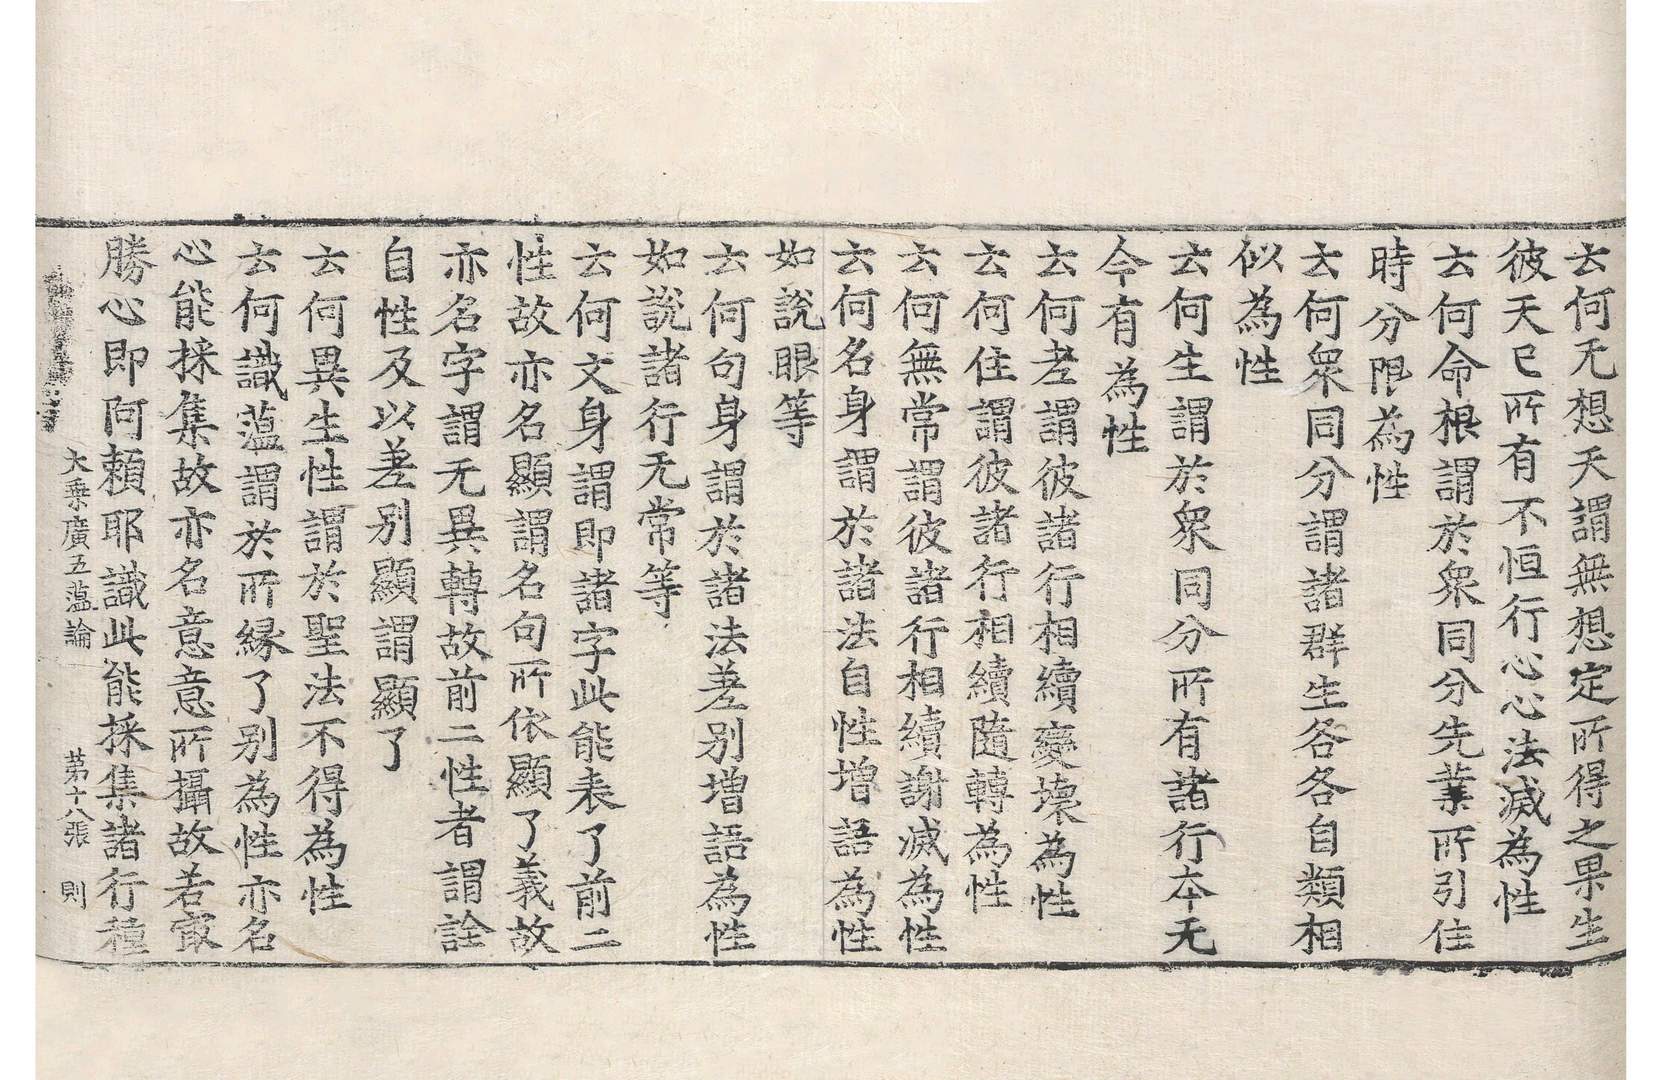 云何无想天謂無想定所得之果生
彼天已所有不恒行心心法滅為性
云何命根謂於眾同分先業所引住
時分限為性
云何眾同分謂諸群生各各自類相
似為性
云何生謂於眾同分所有諸行本无
今有為性
云何老謂彼諸行相續變壞為性
云何住謂彼諸行相續隨轉為性
云何無常謂彼諸行相續謝滅為性
云何名身謂於諸法自性增語為性
如說眼等
云何句身謂於諸法差別增語為性
如說諸行无常等
云何文身謂即諸字此能表了前二
性故亦名顯謂名句所依顯了義故
亦名字謂无異轉故前二性者謂詮
自性及以差別顯謂顯了
云何異生性謂於聖法不得為性
云何識蘊謂於所緣了別為性亦名
心能採集故亦名意意所攝故若寂
勝心即阿賴耶識此能採集諸行種
大乘廣五蘊論 苐十八張 則